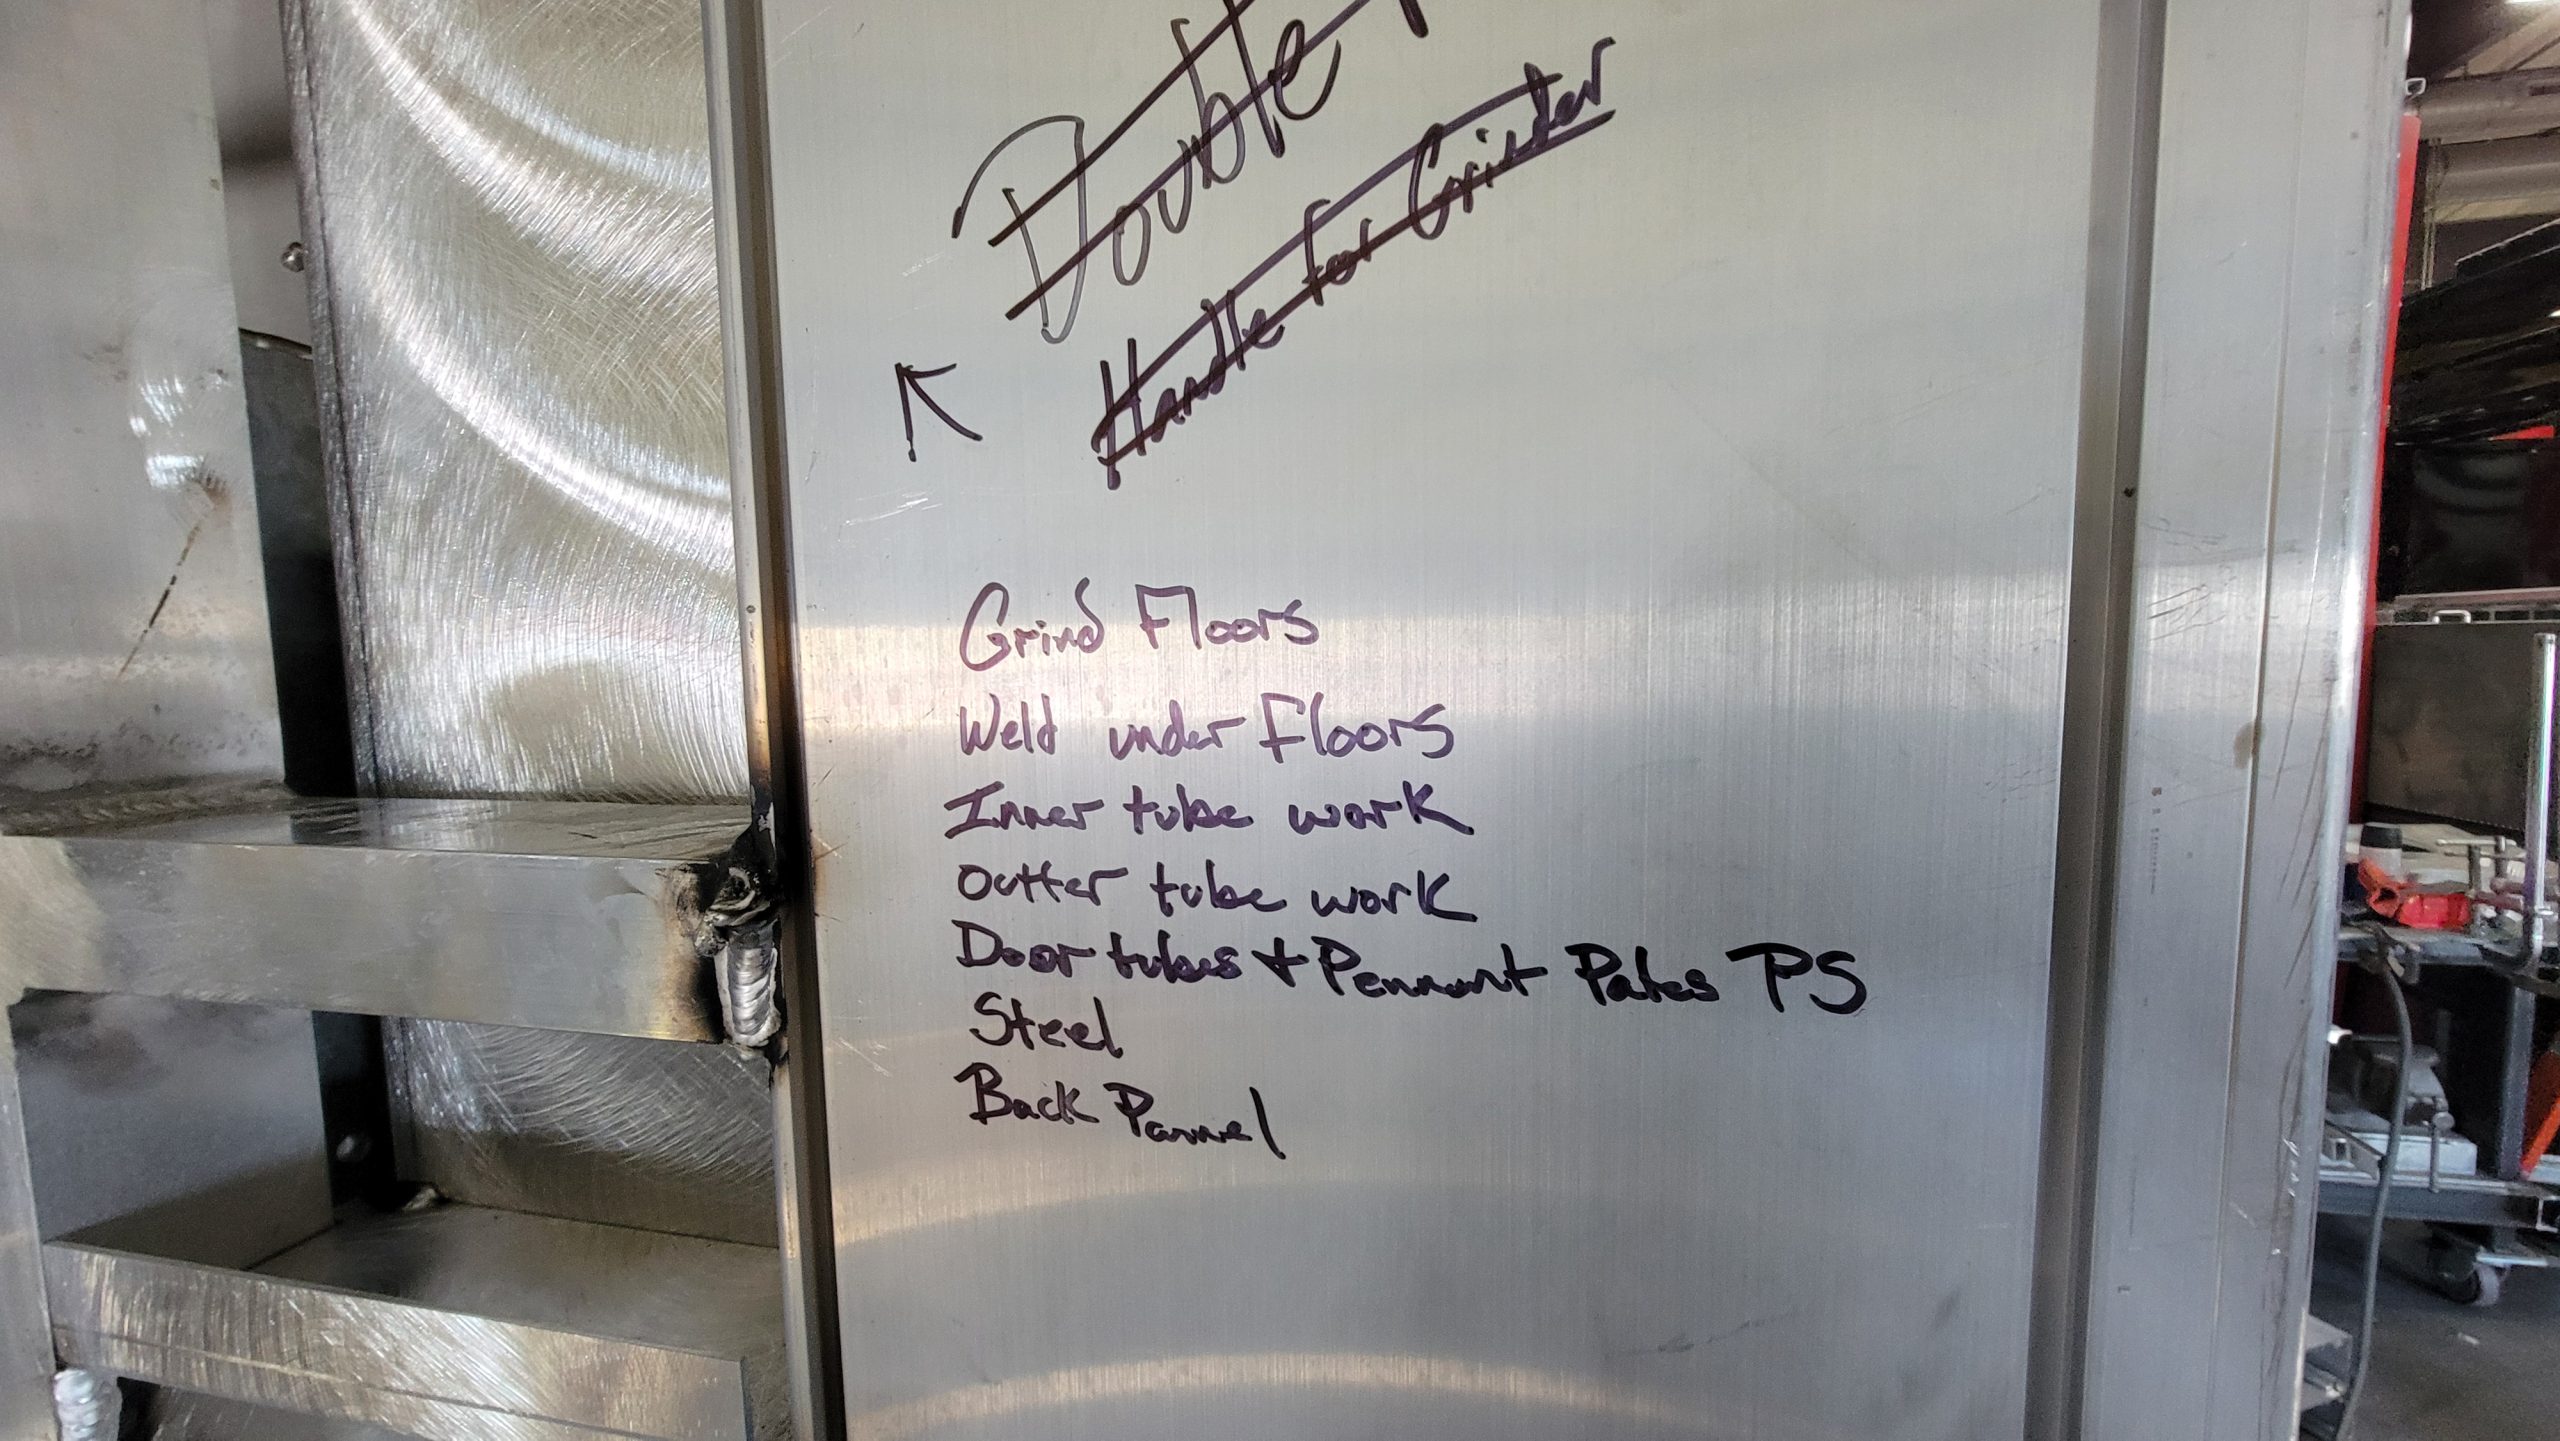 Double
Handle for Grinder
Grind Floors
Weld under Floors
Inner tube work
Outter tube work
Door tubes + Pennant Pates PS
Steel
Back Pannel